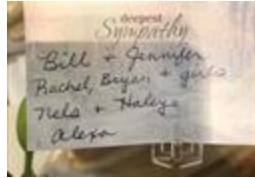 deepest
Sympathy
Bill + Jennifer
Rachel, Bryan + girls
Nels + Haleye
Alexa